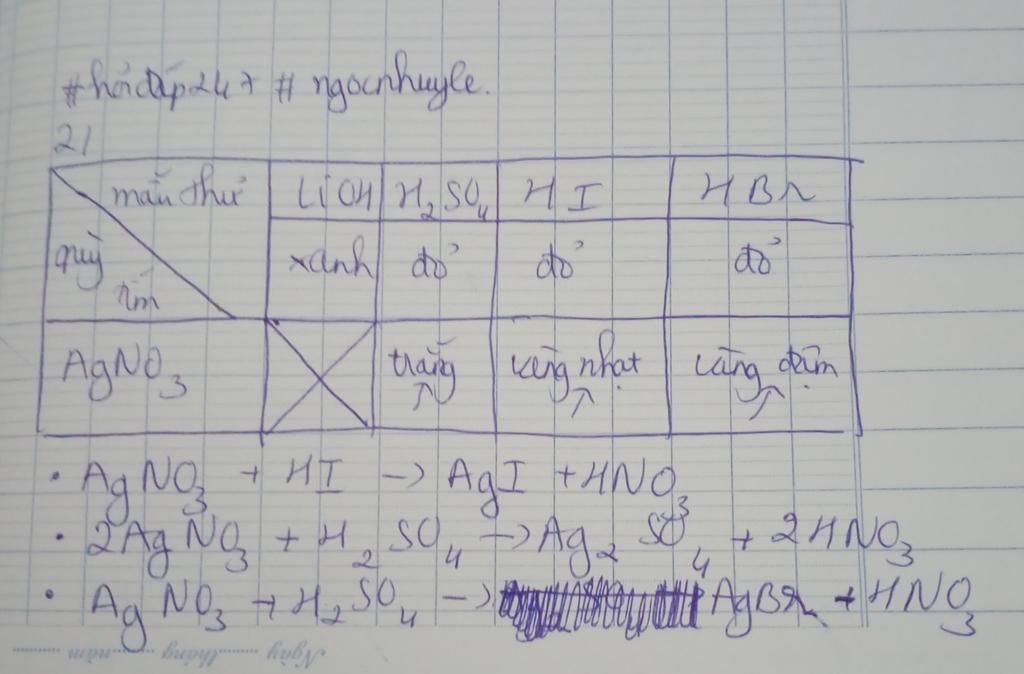 #hỏiđáp247 # ngocnhuyle.
2/
mẫu thử LiOH H₂SO₄ HI HBr
quỳ tím xanh đỏ đỏ đỏ
AgNO₃ trắng vàng nhạt vàng đậm
↑ ↑ ↑
• AgNO₃ + HI -> AgI + HNO₃
• 2AgNO₃ + H₂SO₄ -> Ag₂SO₄ + 2HNO₃
• AgNO₃ + H₂SO₄ -> AgBr + HNO₃
Ngày ......... tháng ......... năm .........